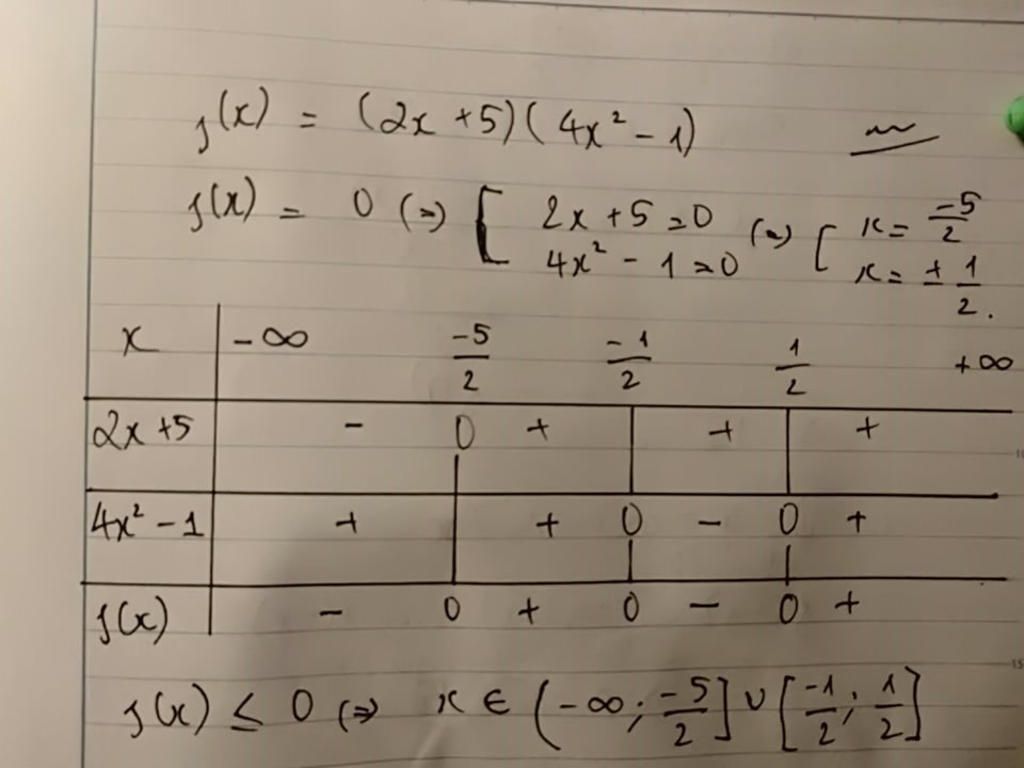 f(x) = (2x + 5)(4x² - 1)
f(x) = 0 (=) [ 2x + 5 = 0 (=) [ x = -5/2
4x² - 1 = 0 x = ± 1/2.
x -∞ -5/2 -1/2 1/2 +∞
2x + 5 - 0 + + +
4x² - 1 + + 0 - 0 +
f(x) - 0 + 0 - 0 +
f(x) ≤ 0 (=) x ∈ (-∞; -5/2] ∪ [-1/2; 1/2]
10
15